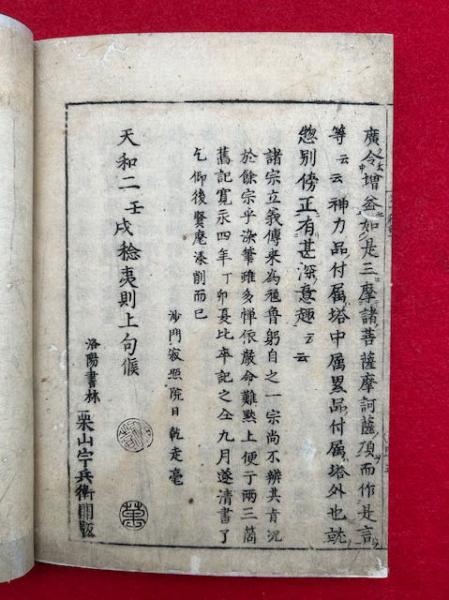 廣令増益如是三摩諸菩薩摩訶薩頂而作是言
等云云神力品付属塔中属累品付属塔外也就
惣別傍正有甚深意趣云云
諸宗立義傳来為魯躬自之一宗尚不辨其旨況
於餘宗乎染筆雖多憚依嚴命難黙上便于兩三箇
舊記寛永四年丁卯夏比卒記之仝九月遂清書了
乞仰後賢麾添削而已
沙門寂照院日乾走毫
天和二壬戌稔夷則上旬候
洛陽書林
栗山宇兵衛開板